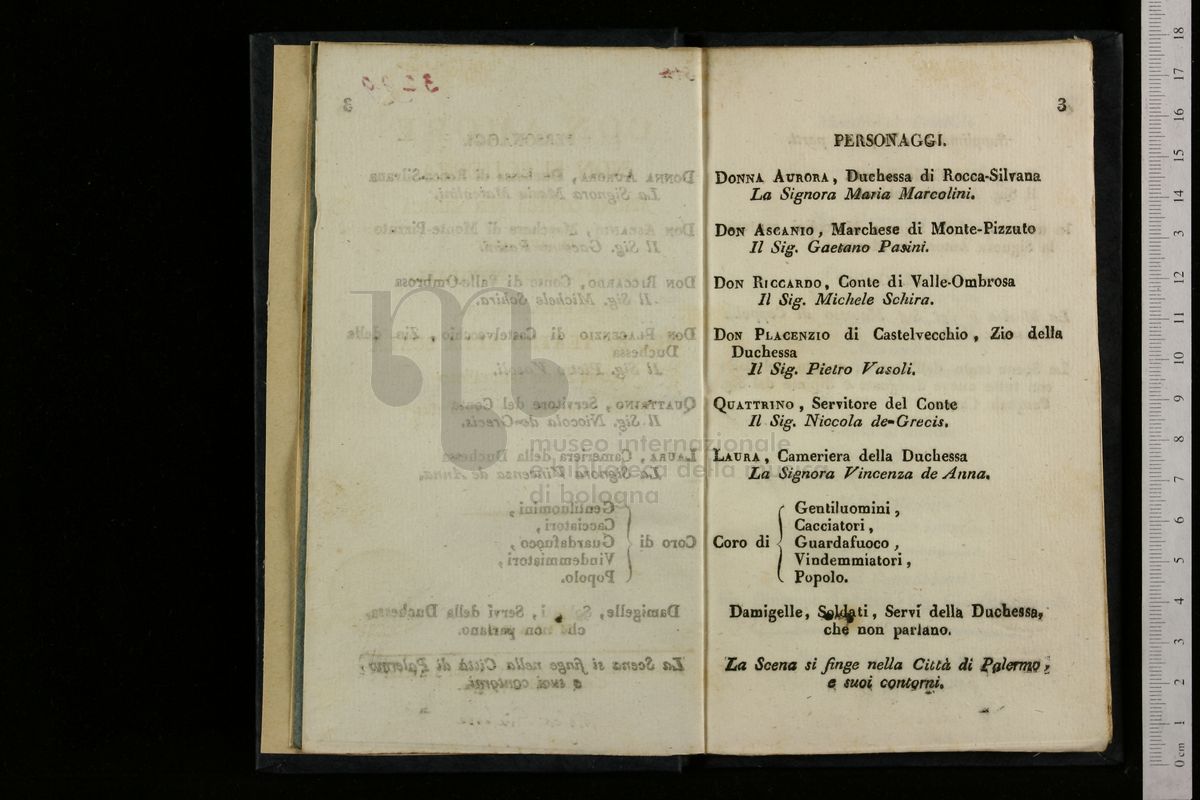 3
PERSONAGGI.
Donna Aurora, Duchessa di Rocca-Silvana
La Signora Maria Marcolini.
Don Ascanio, Marchese di Monte-Pizzuto
Il Sig. Gaetano Pasini.
Don Riccardo, Conte di Valle-Ombrosa
Il Sig. Michele Schira.
Don Placenzio di Castelvecchio, Zio della
Duchessa
Il Sig. Pietro Vasoli.
Quattrino, Servitore del Conte
Il Sig. Niccola de-Grecis.
Laura, Cameriera della Duchessa
La Signora Vincenza de Anna.
Coro di
Gentiluomini,
Cacciatori,
Guardafuoco,
Vindemmiatori,
Popolo.
Damigelle, Soldati, Servi della Duchessa,
che non parlano.
La Scena si finge nella Città di Palermo,
e suoi contorni.
museo internazionale
e biblioteca della musica
di bologna
0 cm 1 2 3 4 5 6 7 8 9 10 11 12 13 14 15 16 17 18